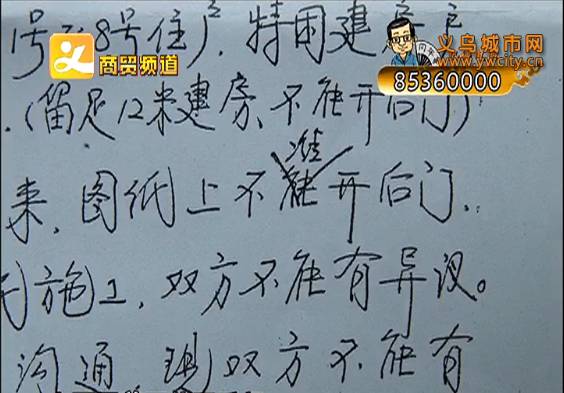 1号 8号住户,特困建房
商贸频道
义乌城市网
www.ywcity.cn
85360000
(留足12米建房、不能开后门)
准
来,图纸上不能开后门.
施工,双方不能有异议。
沟通 双方不能有